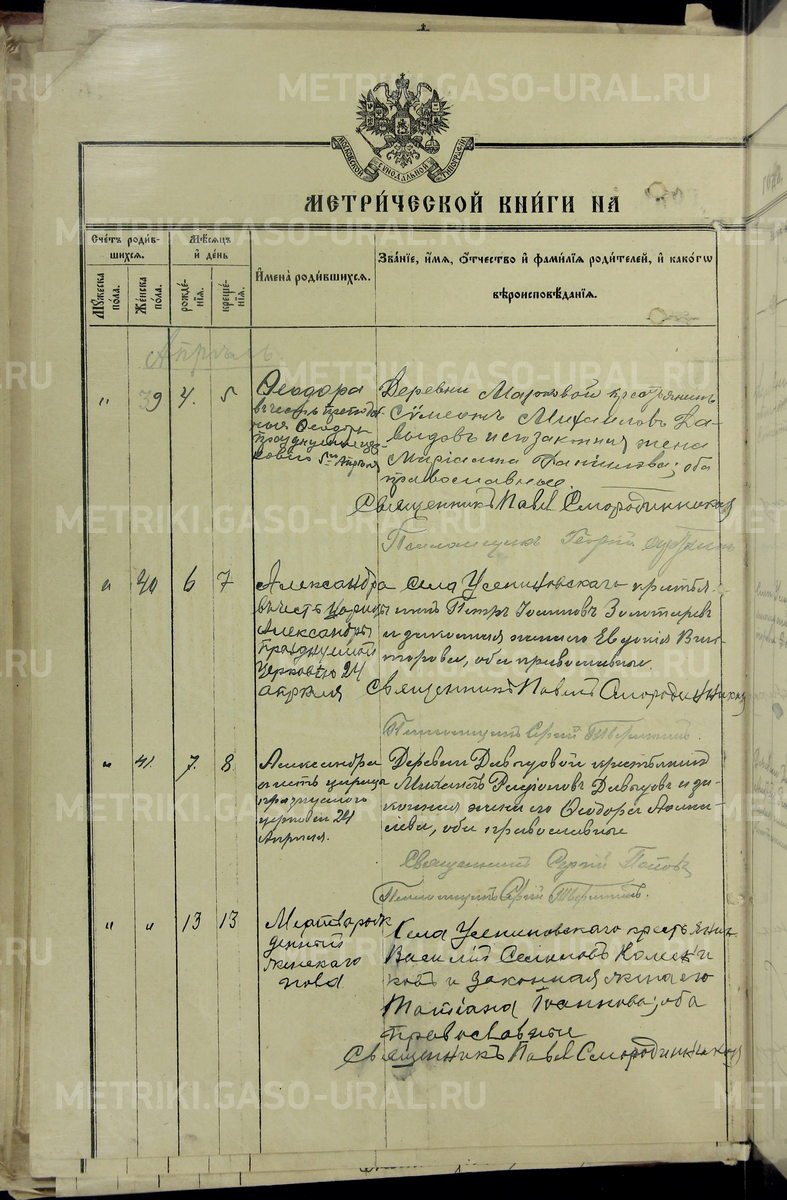 METRIKI.GASO-URAL.RU
МОСКОВСКОЙ СѴНОДАЛЬНОЙ ТИПОГРАФІИ
МЕТРИ́ЧЕСКОЙ КНИ́ГИ НА
Сче́тъ роди́в-
шихся.
Му́жеска по́ла.
Же́нска по́ла.
Мѣ́сяцъ
и҆ де́нь
рожде́-
нїѧ.
креще́-
нїѧ.
И҆мена̀ роди́вшихсѧ.
Зва́нїе, и҆́мѧ, ѻ҆́тчество и҆ фамилїѧ роди́телей, и҆ како́гѡ
вѣроисповѣ́данїѧ.
Апрѣль.
„ 39 4. 5 Ѳеодора
въ честь преподоб
ныя Ѳеодоры
празднуемой цер
ковію 5го Апрѣля
Деревни крестьянинъ
Сѵмеонъ Михаиловъ Да-
выдовъ и его законная жена
Маріамна оба
православные.
Священникъ Павелъ Смородинников
Псаломщикъ
„ 40 6 7 Александра
въ честь царицы
Александры
празднуемой
церковью 24
апрѣля
Села Усениновскаго крестья
нинъ Петръ Іоанновъ Золотаревъ
и законная жена его Евдокія Вик
торова, оба православные.
Священникъ Павелъ Смородинников
Псаломщикъ Сергій
„ 41. 7. 8 Александра
въ честь царицы
празднуемой
церковью 24
Апрѣля.
Деревни Давыдовой крестьянинъ
Михаилъ Давыдовъ и за-
конная жена его Ѳеодора
оба православные
Священникъ Сергій Поповъ
Псаломщикъ Сергій
„ „ 13 13 Мертворож
денный
женскаго
пола
Села Усениновскаго крестьянин
Василій Семеновъ Колесни
ковъ и законная жена его
Татіана Іоаннова; оба
православные
Священникъ Павел Смородинников